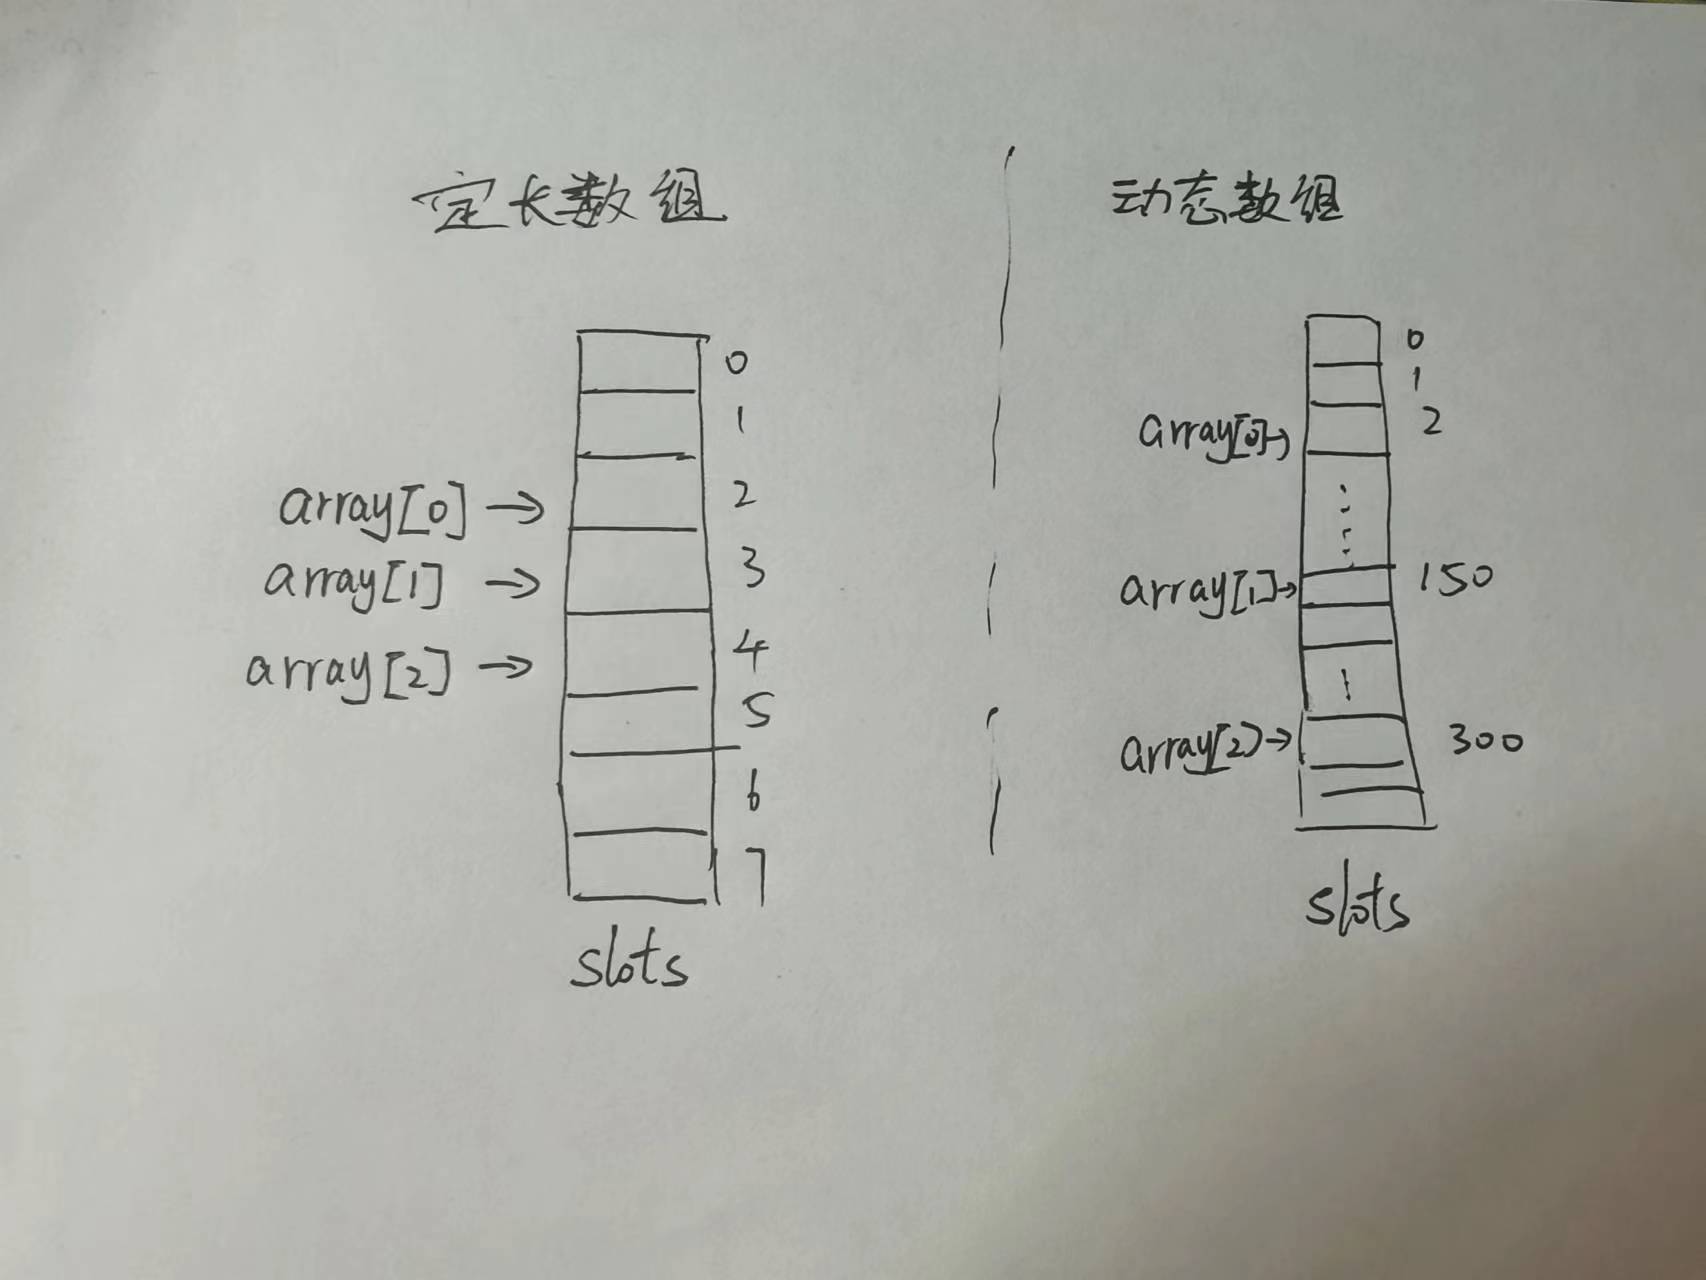 定长数组
0
1
array[0] → 2
array[1] → 3
array[2] → 4
5
6
7
slots
动态数组
0
1
array[0] → 2
array[1] → 150
array[2] → 300
slots